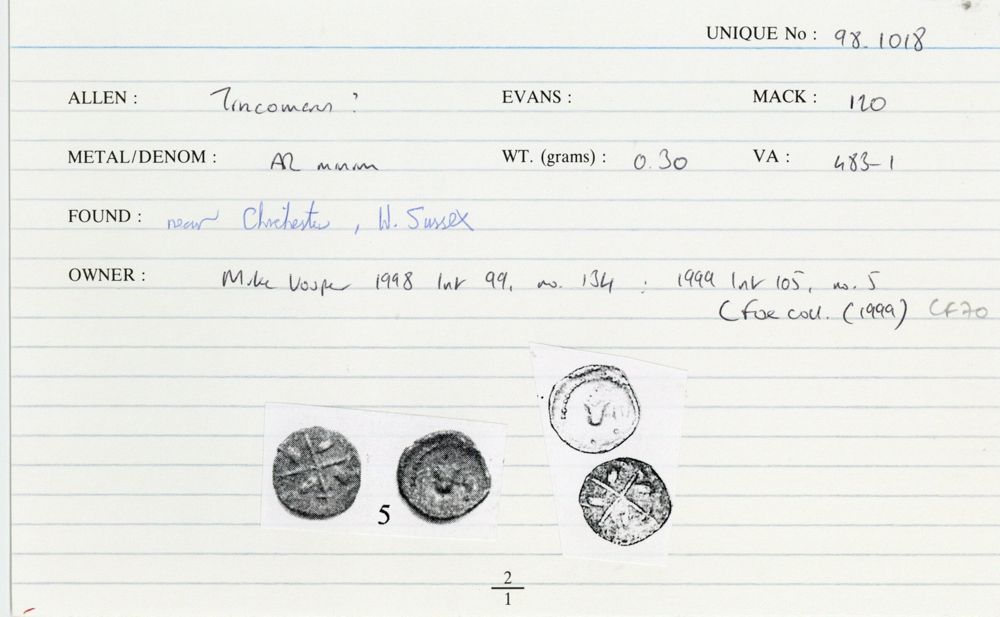 UNIQUE No : 98.1018
ALLEN : Tincomarus ? EVANS : MACK : 120
METAL/DENOM : AR minim WT. (grams) : 0.30 VA : 483-1
FOUND : near Chichester, W. Sussex
OWNER : Mike Vosper 1998 Int 99, no. 134 : 1999 Int 105, no. 5
C Foe coll. (1999) CF70
5
2
1